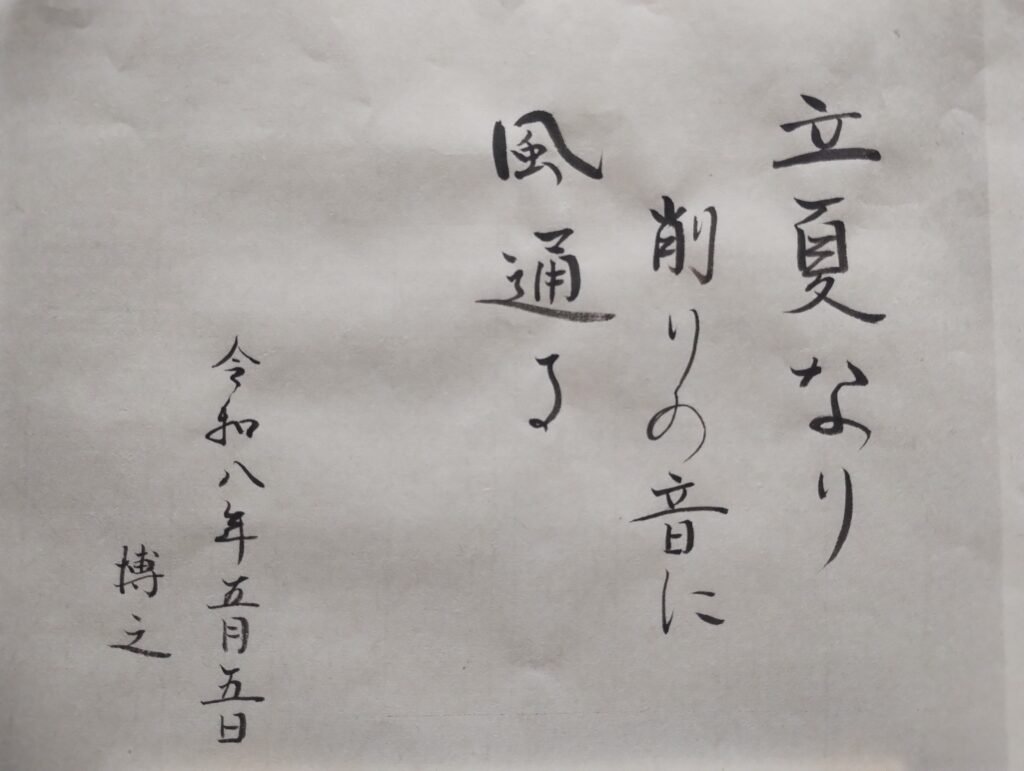 立夏なり
削りの音に
風通る
令和八年五月五日
博之